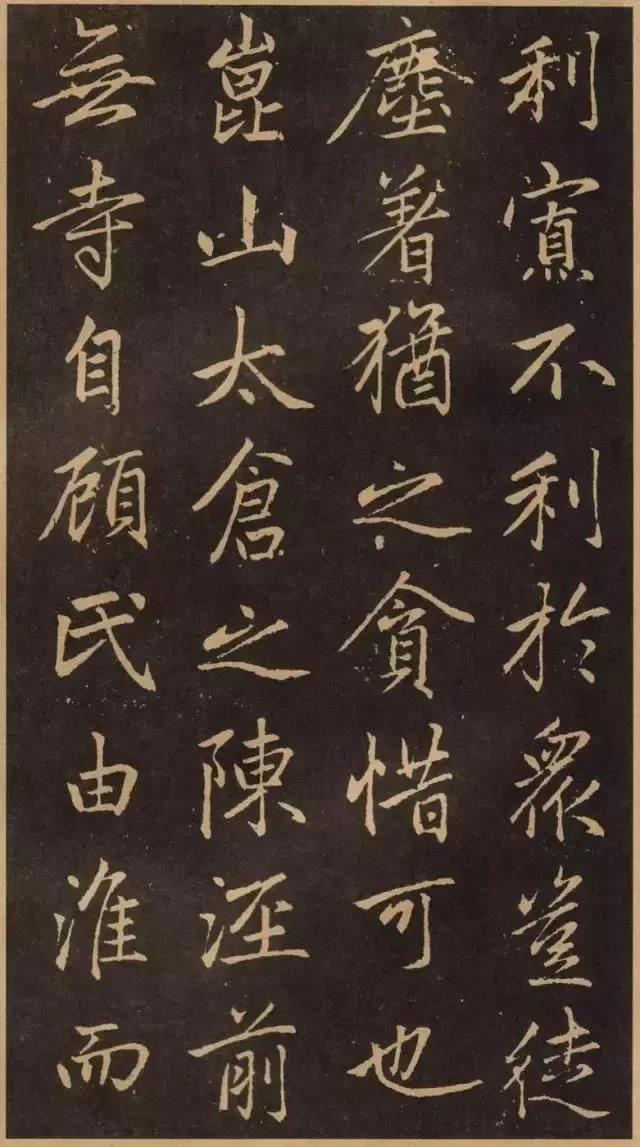 利寘不利於眾豈徒
塵着猶之貪惜可也
崑山太倉之陳涇前
無寺自顧民由淮而